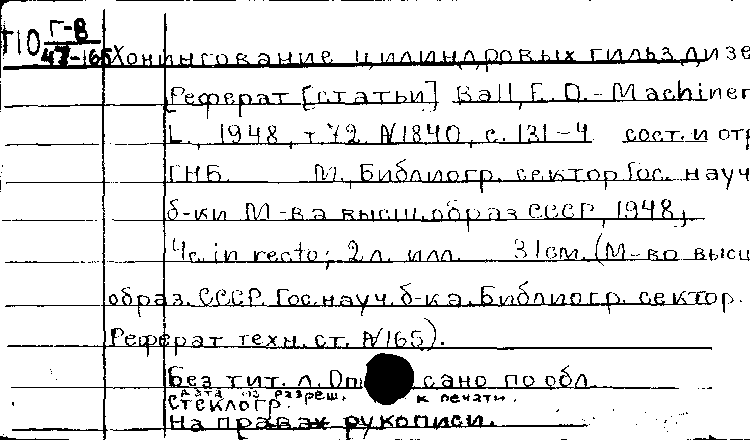 Г10 Г-В
47-165
Хонингование цилиндровых гильз дизе
Реферат [статьи] Ball, F. D. - Machiner
L., 1948, т. 72. №1840, с. 131-4 сост. и отр
ГНБ. М., Библиогр. сектор Гос. науч
б-ки М-ва высш. образ СССР, 1948,
4с. in recto; 2 л. илл. 31см. (М-во высш
образ. СССР. Гос. науч. б-ка. Библиогр. сектор.
Реферат техн. ст. №165).
Без тит. л. Оп сано по обл.
дата из разреш. к печати.
Стеклогр.
На правах рукописи.